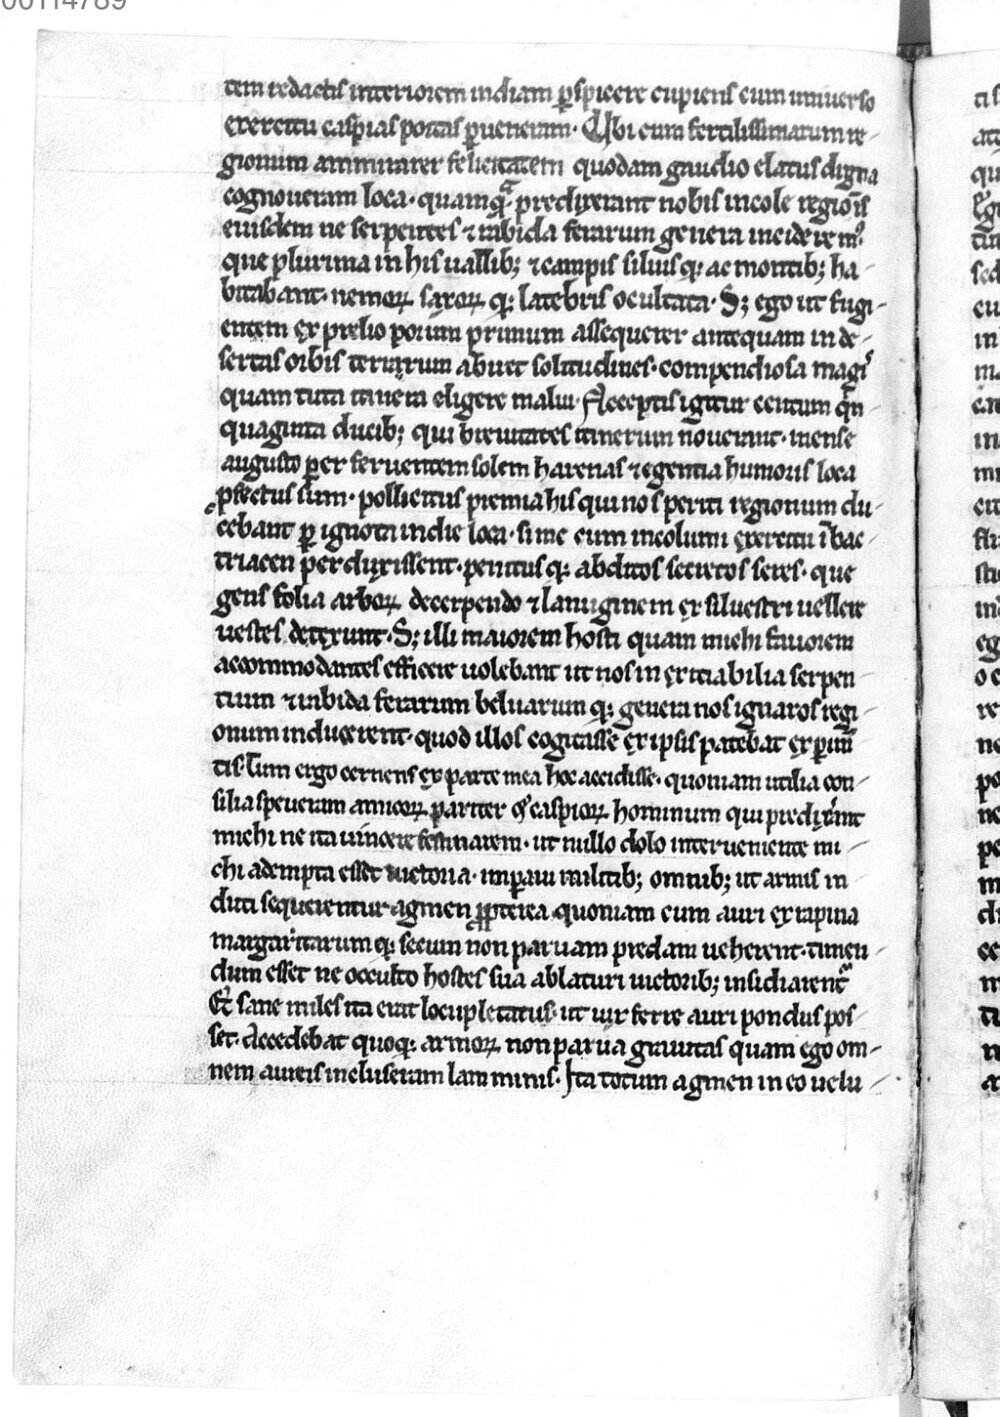 00114789
tem redactis interiorem indiam ꝑspicere cupiens cum uniuerso
exercitu caspias portas ꝑueneram· Ubi cum fertilissimarum re-
gionum ammirarer felicitatem quodam gaudio elatus digna
cognoueram loca· quamqᷓ· predixerant nobis incole regiōis
eiusdem ne serpentes ⁊ rabida ferarum genera incideremꝰ
que plurima in his uallib; ⁊ campis siluis q; ac montib; ha-
bitabant· nemoꝝ saxoꝝ q; latebris ocultata· S; ego ut fugi-
entem ex prelio porum primum assequerer antequam in de-
sertas orbis terrarum abiret solitudines· compendiosa magis
quam tuta itinera eligere malui· Acceptis igitur centum qin
quaginta ducib; qui breuitates itinerum nouerant· mense
augusto per feruentem solem harenas ⁊ egentia humoris loca
ꝓfectus sum· pollicitus premia his qui nos periti regionum du-
cebant ꝑ ignota indie loca· si me cum incolumi exercitu ī bac-
triacen perduxissent· penitus q; abditos secretos seres· que
gens folia arboꝝ decerpendo ⁊ lanuginem ex siluestri uellere
uestes detexunt· S; illi maiorem hosti quam michi fauorem
accommodantes efficere uolebant ut nos inextiabilia serpen-
tium ⁊ rabida ferarum beluarum q; genera nos ignaros regi-
onum inducerent· quod illos cogitasse ex ipsis patebat exꝑim̄
tis· Tum ergo cernens ex parte mea hec accidisse· quoniam utilia con-
silia spreueram amicoꝝ pariter & caspioꝝ hominum qui predixerant
michi ne ita uincere festinarem· ut nullo dolo interueniente mi-
chi adempta esset uictoria· imꝑaui militib; omnib; ut armis in
duti sequerentur agmen ꝓpterea quoniam cum auri ex rapina
margaritarum q; secum non paruam predam ueherent· timen-
dum esset ne occulto hostes sua ablaturi uictorib; insidiarentᷓ
Et sane miles ita erat locupletatus· ut uix ferre auri pondus pos-
set· Accedebat quoq; armoꝝ non parua grauitas quam ego om-
nem aureis incluseram lamminis· Ita totum agmen in eo uelu-